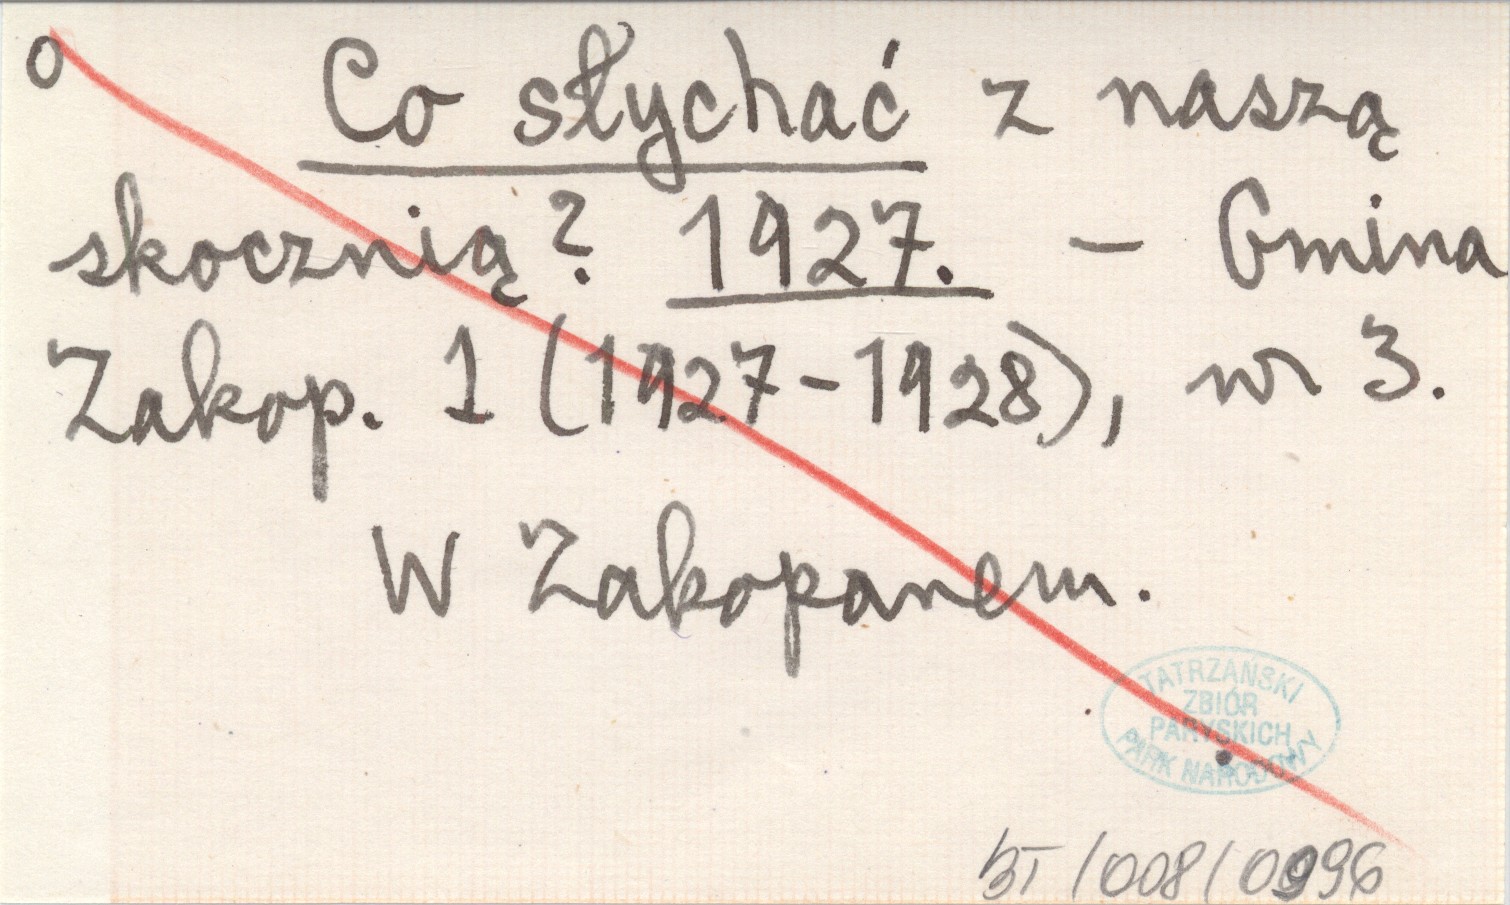 o Co słychać z naszą
skocznią? 1927. – Gmina
Zakop. 1 (1927-1928), nr 3.
W Zakopanem.
TATRZAŃSKI
ZBIÓR
PARYSKICH
PARK NARODOWY
BT/008/0996